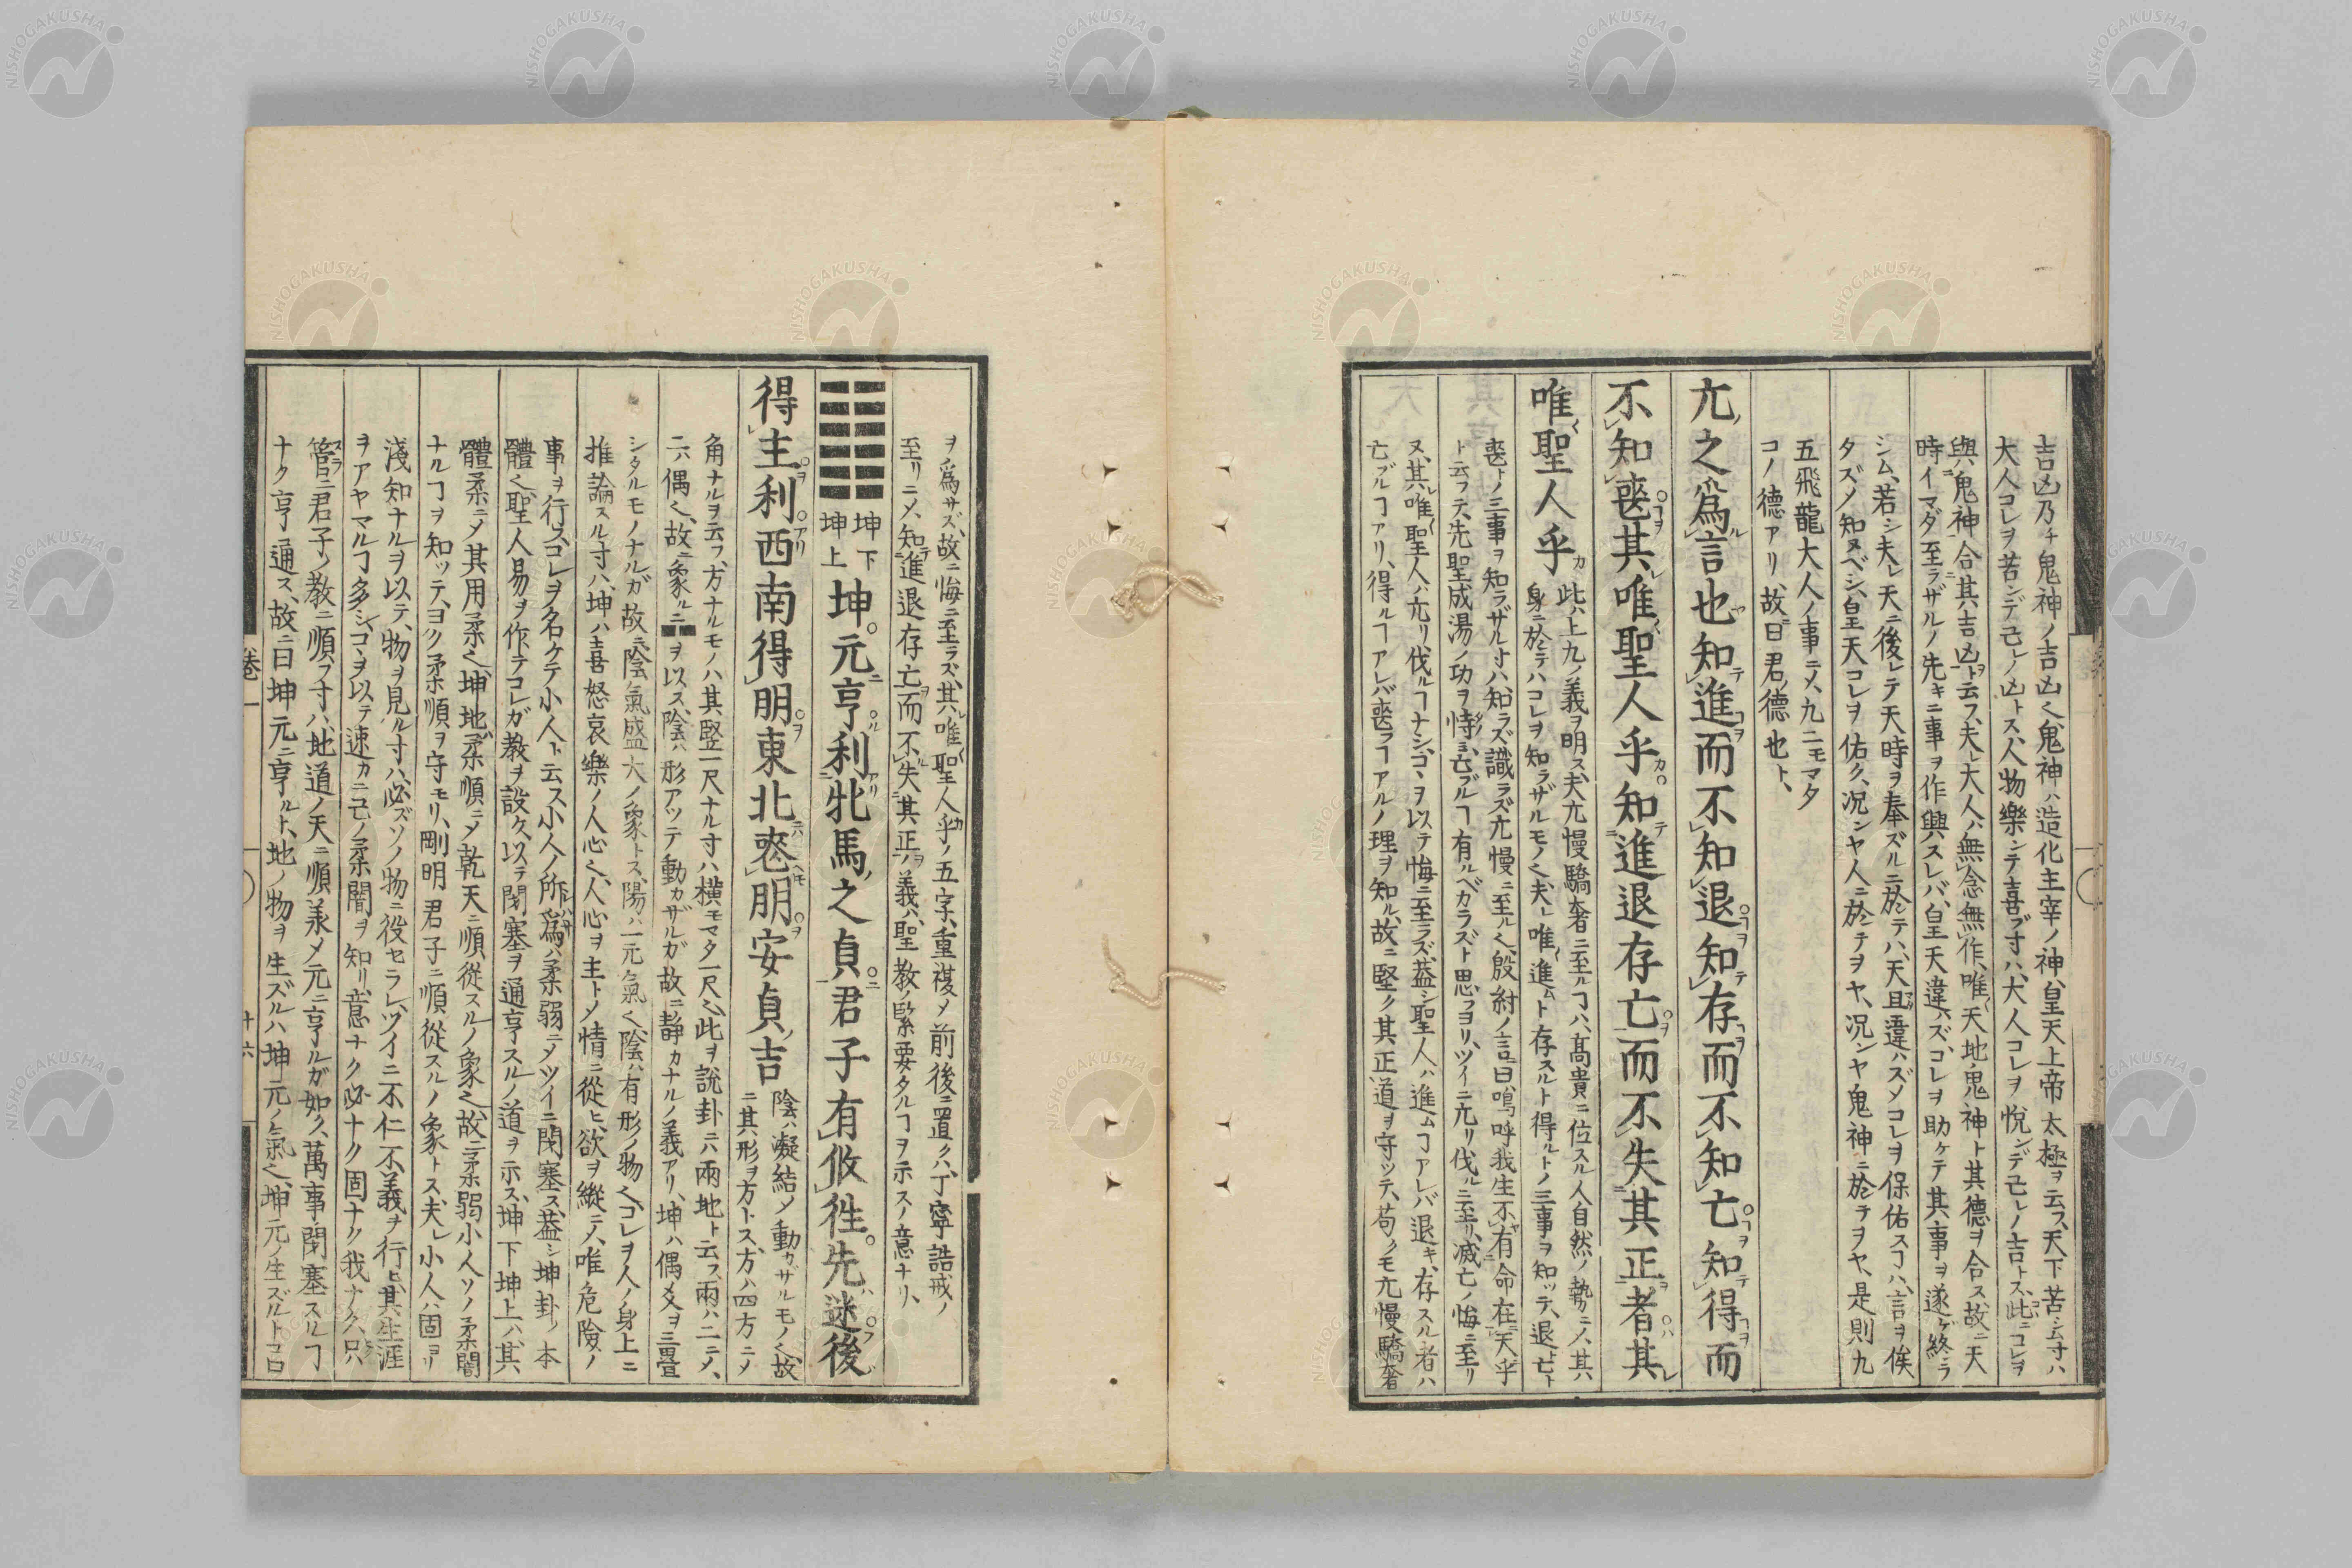 吉凶乃チ鬼神ノ吉凶ﾍ鬼神ハ造化主宰ノ神皇天上帝太極ヲ云フ、天下苦シム寸ハ
大人コレヲ苦シンデ己レノ凶トス、人物樂シテ喜ブ寸ハ、大人コレヲ悅シデ己レノ吉トス、此ニコレヲ
與鬼神合其吉凶ト云フ、夫レ大人ハ無念無作、唯天地鬼神ト其德ヲ合ス故ニ天
時イマダ至ラザルノ先キニ事ヲ作興スレバ、皇天違ハズ、コレヲ助ケテ其事ヲ遂ゲ終ラ
シム、若シ夫レ天ニ後レテ天時ヲ奉ズルニ於テハ、天且違ハズメコレヲ保佑スヿハ、言ヲ俟
タズメ知ヌベシ、皇天コレヲ佑ク、況ンヤ人ニ於テヲヤ、況ンヤ鬼神ニ於テヲヤ、是則九
五飛龍大人ノ事ニメ、九二モマタ
コノ德アリ、故曰君德也ト、
亢之爲言也知進而不知退知存而不知亡知得而
不知喪其唯聖人乎知進退存亡而不失其正者其
唯聖人乎
此ハ上九ノ義ヲ明ス、夫亢慢驕奢ニ至ルヿハ、高貴ニ位スル人自然ノ勢ニメ、其
身ニ於テハコレヲ知ラザルモノﾍ、夫レ唯進ムト存スルト得ルトノ三事ヲ知ッテ、退ト亡ト
喪トノ三事ヲ知ラザル寸ハ、知ラズ識ラズ亢慢ニ至ルﾍ、殷紂ノ言曰嗚呼我生不有命在天乎
ト云フテ、先聖成湯ノ功ヲ恃ミ、亡ブルヿ有ルベカラズト思フヨリ、ツイニ亢リ伐ルニ至リ、滅亡ノ悔ニ至リ
又其唯聖人ハ亢リ伐ルヿナシ、コヽヲ以テ悔ニ至ラズ、葢シ聖人ハ進ムヿアレバ退キ、存スル者ハ
亡ブルヿアリ、得ルヿアレバ喪フヿアルノ理ヲ知ル、故ニ堅ク其正道ヲ守ッテ、苟クモ亢慢驕奢
ヲ爲サズ、故ニ悔ニ至ラズ、其唯聖人乎ノ五字、重複メ前後ニ置クハ、丁寧誥戒ノ
至リニメ、知進退存亡而不失其正ノ義ハ、聖教ノ緊要タルヿヲ示スノ意ナリ、
坤下
坤上
坤元亨利牝馬之貞君子有攸徃先迷後
得主利西南得朋東北喪朋安貞吉
陰ハ凝結メ動カザルモノﾍ、故
ニ其形ヲ方トス、方ハ四方ニメ
角ナルヲ云フ、方ナルモノハ其竪一尺ナル寸ハ橫モマタ一尺ﾍ、此ヲ說卦ニハ兩地ト云フ、兩ハ二ニメ、
二六偶ﾍ、故ニ象ルニ⚋ヲ以ス、陰ハ形アッテ動カザルガ故ニ靜カナルノ義アリ、坤ハ偶爻ヲ三疊
シタルモノナルガ故ニ、陰氣盛大ノ象トス、陽ハ一元氣ﾍ、陰ハ有形ノ物ﾍ、コレヲ人ノ身上ニ
推論スル寸ハ、坤ハ喜怒哀樂ノ人心ﾍ、人心ヲ主トメ情ニ從ヒ、欲ヲ縱ニメ、唯危險ノ
事ヲ行ス、コレヲ名ケテ小人ト云ス、小人ノ所爲ハ柔弱ニメツイニ閉塞ス、葢シ坤卦ノ本
體ﾍ、聖人易ヲ作テコレガ教ヲ設ケ、以テ閉塞ヲ通亨スルノ道ヲ示ス、坤下坤上ハ、其
體柔ニメ其用柔ﾍ、坤地ハ柔順ニメ乾天ニ順從スルノ象ﾍ、故ニ柔弱小人ソノ柔闇
ナルヿヲ知ッテ、ヨク柔順ヲ守モリ、剛明君子ニ順從スルノ象トス、夫レ小人ハ固ヨリ
淺知ナルヲ以テ、物ヲ見ル寸ハ、必ズソノ物ニ役セラレ、ツイニ不仁不義ヲ行ヒ、其生涯
ヲアヤマルヿ多シ、コヽヲ以テ速カニ己ノ柔闇ヲ知リ、意ナク必ナク固ナク我ナク、只
管ニ君子ノ教ニ順フ寸ハ、地道ノ天ニ順承メ元ニ亨ルガ如ク、萬事閉塞スルヿ
ナク亨通ス、故ニ曰坤元ニ亨ルト、地ノ物ヲ生ズルハ坤元ノ氣ﾍ、坤元ノ生ズルトコロ
卷一
十六